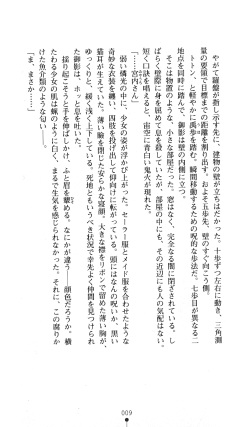 やがて羅盤が指し示す先に、建物の壁が立ちはだかった。十歩ずつ左右に動き、三角測
量の要領で目標までの距離を割り出す。およそ五歩先。壁のすぐ向こう側。
トトン、と軽やかに禹歩を踏んで、御影は壁の側に立つ。
地点を同時に踏んで、瞬間移動するための呪的な歩法だ。七歩目が異なる二
そこは物置のような、小さな部屋だった。窓はなく、完全なる闇に閉ざされている。し
短く口訣を唱えると、宙空に青白い鬼火が現れた。
かも壁には扉もなかった。部屋の中にも、その近辺にも人の気配はない。
「……宮内さん」
弱い燐光の中に、少女の姿が浮かびあがった。セーラー服とメイド服を合わせたような
奇妙な衣装を纏い、四肢を投げ出して仰向けに転がっている。頭にはなんの呪いか、黒い
猫耳が生えていた。薄い瞼を閉じた安らかな寝顔。大きな襟をリボンで留めた薄い胸が、
ゆっくりと、緩く浅く上下している。死地ともいうべき状況で幸先よく仲間を見つけられ
た御影は、ホッと息を吐いた。
揺り起こそうと手を伸ばしかけ、ふと眉を顰める。なにかが違う――顔色だろうか。横
たわる少女の肌は蝋のように白く、まるで生気を感じられなかった。それに、この腐りか
けた魚介類のような匂い――
「ま、まさか……」
009